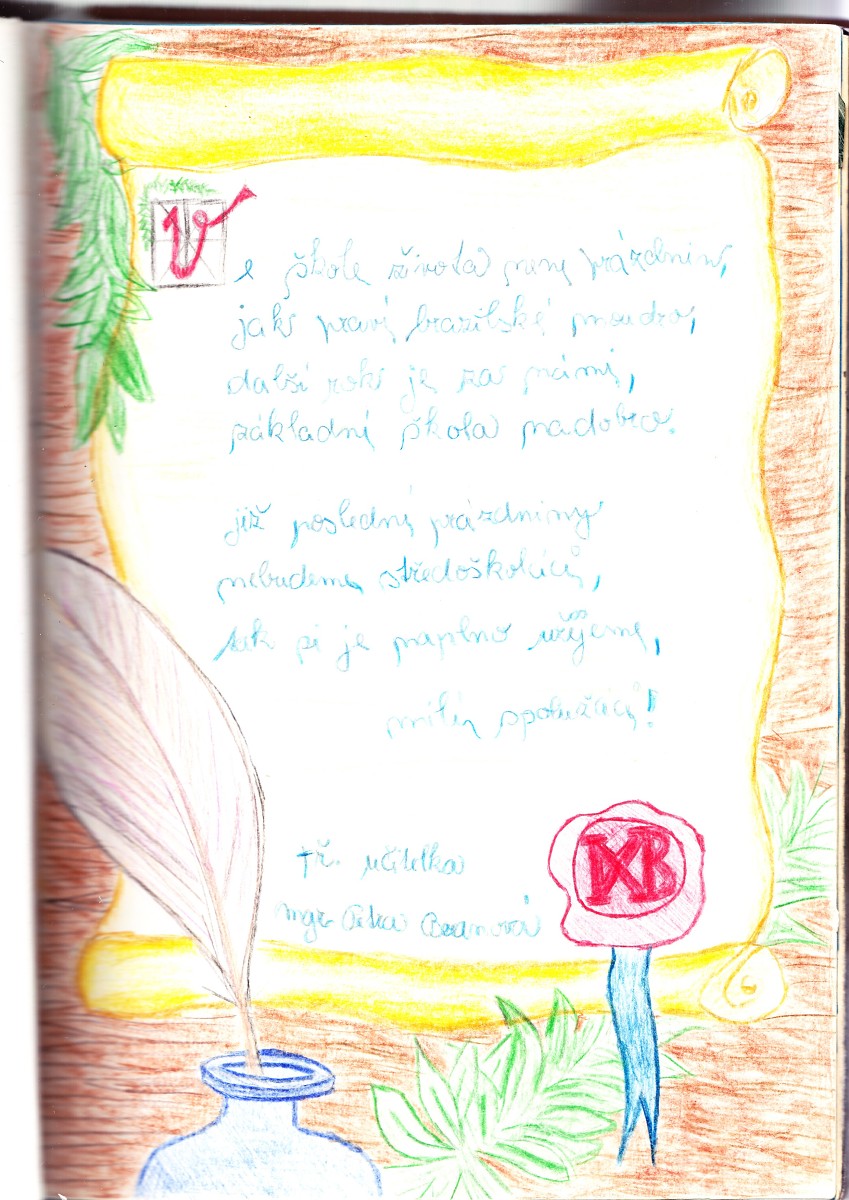 Ve škole života není prázdnin,
jak praví brazilské moudro,
další rok je za námi,
základní škola nadobro.
již poslední prázdniny
nebudeme středoškoláci,
tak si je naplno užijeme,
milí spolužáci!
tř. učitelka
Mgr. Beranová
IXB